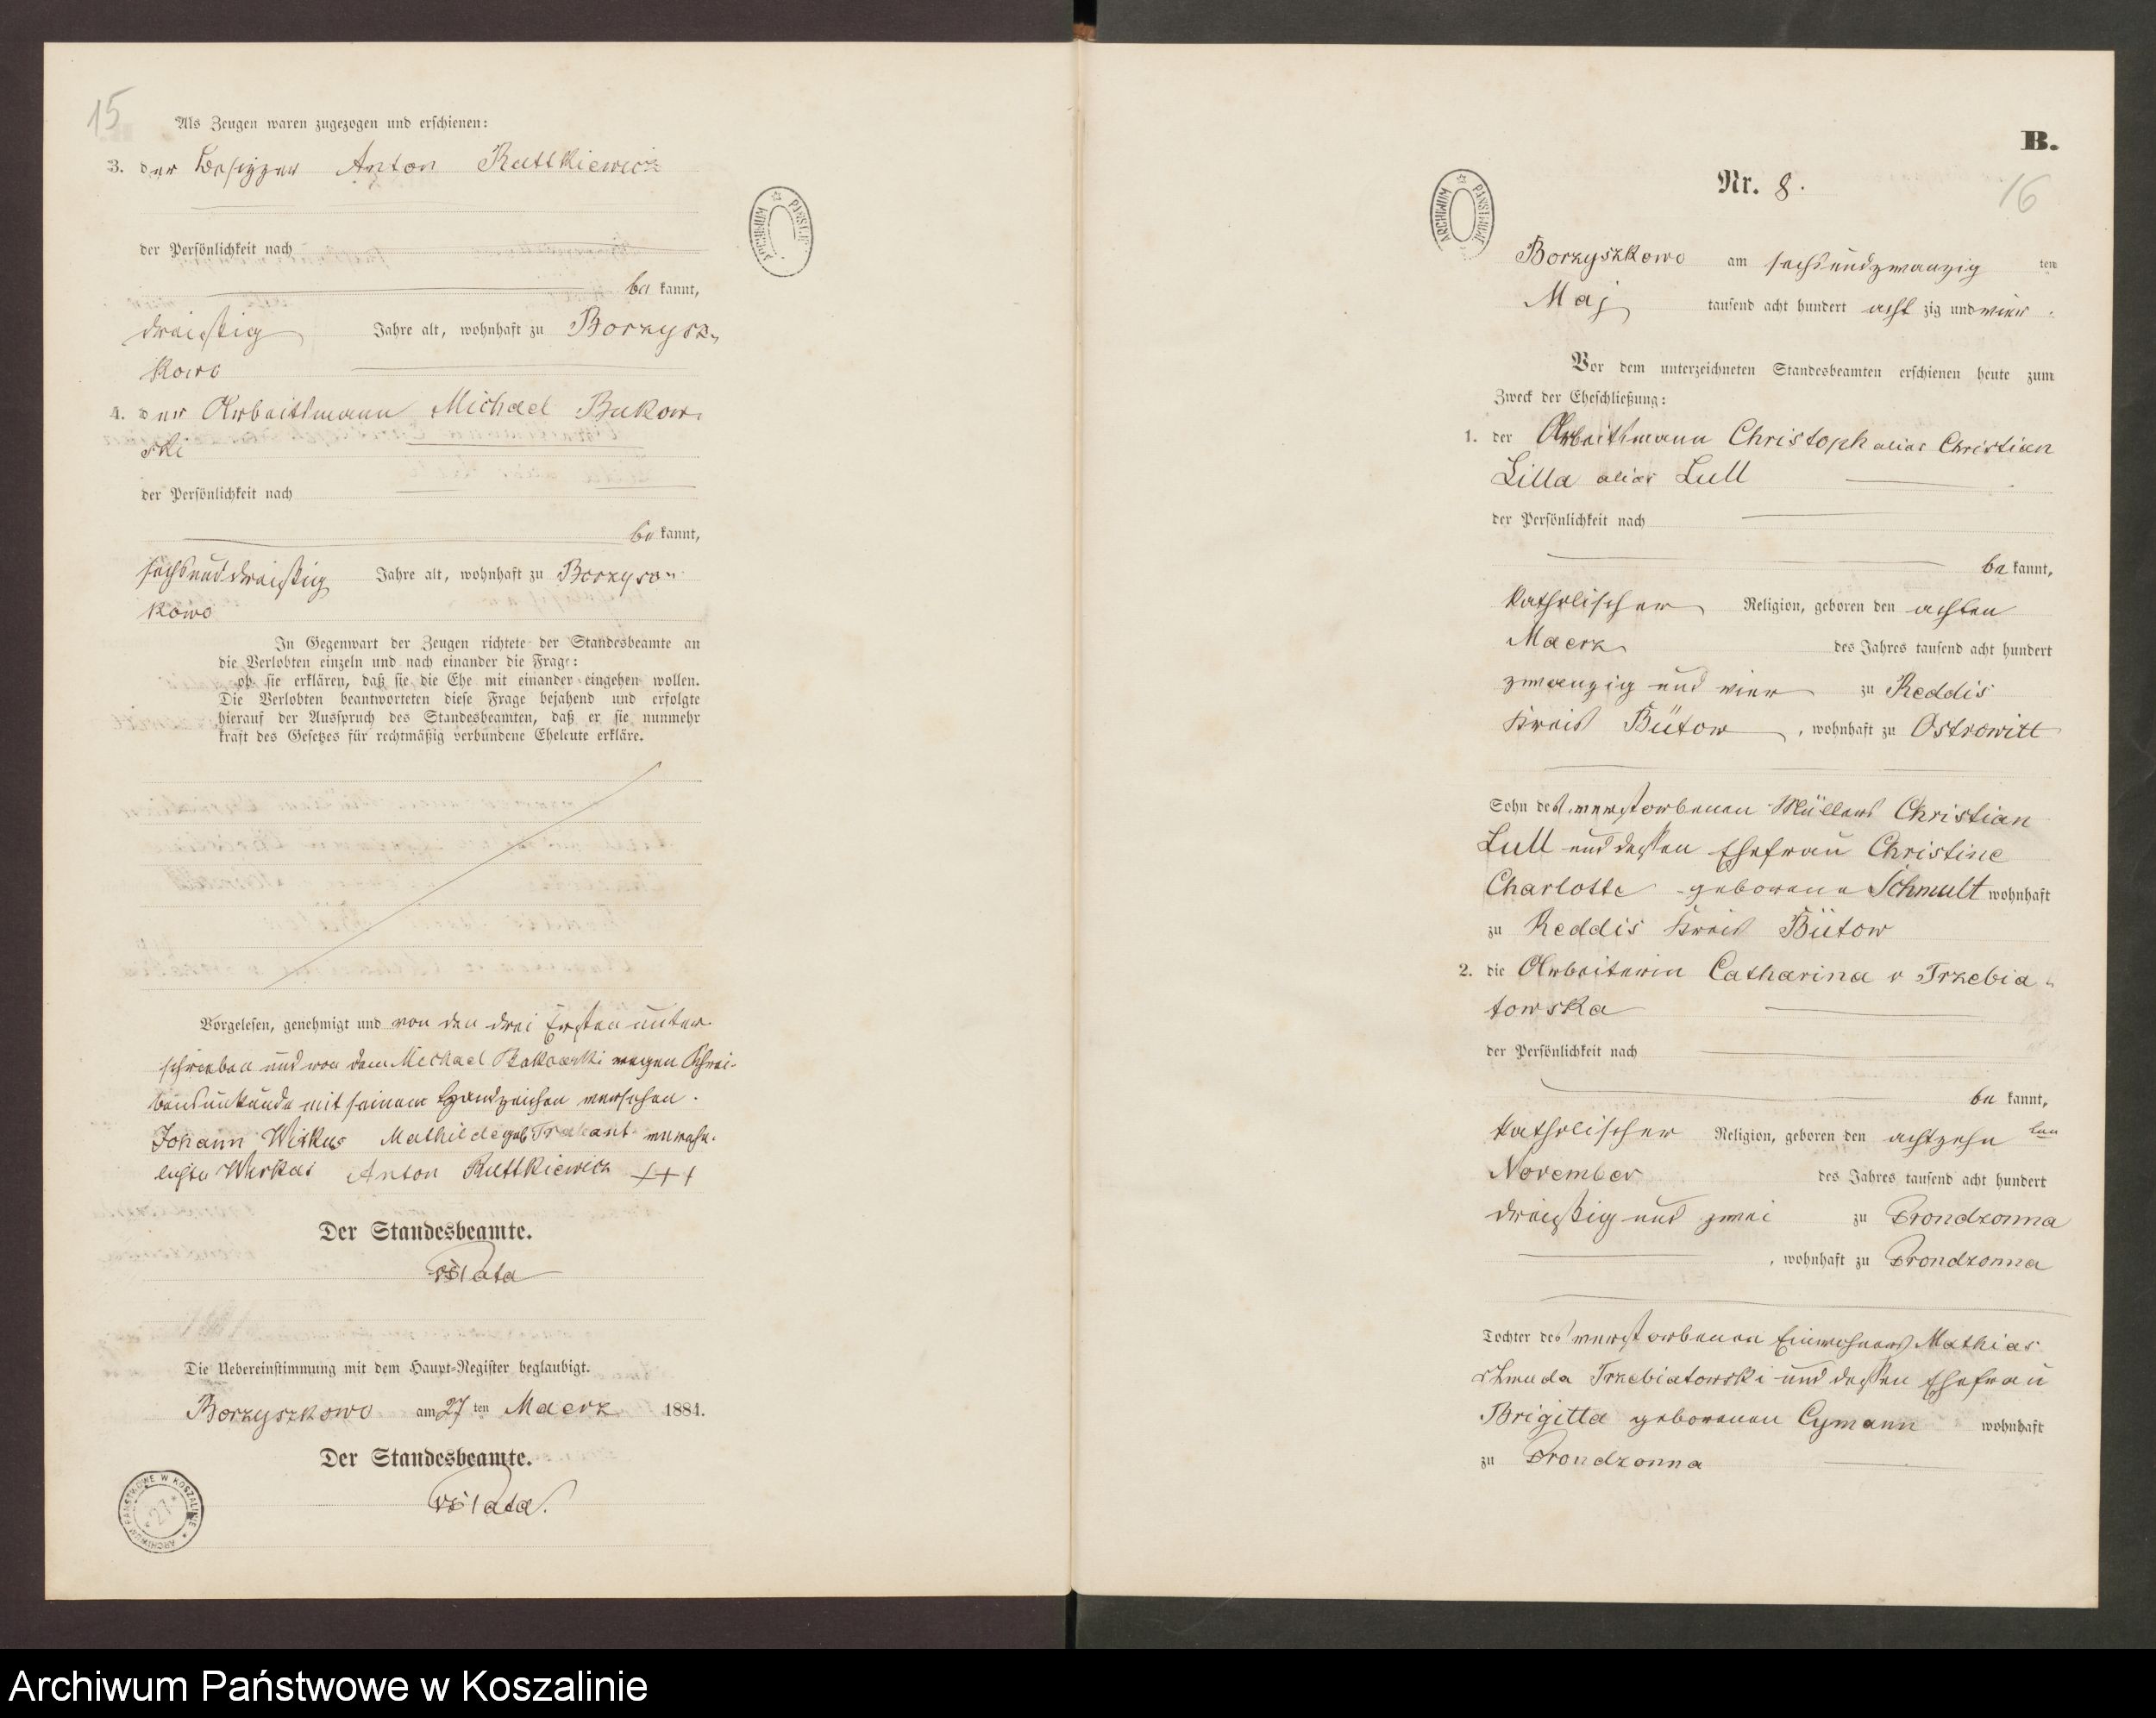 15
Als Zeugen waren zugezogen und erschienen:
3. der Besitzer Anton Ruttkiewicz
der Persönlichkeit nach
be kannt,
dreißig Jahre alt, wohnhaft zu Borzysz-
kowo
4. der Arbeitsmann Michael Bukow-
ski
der Persönlichkeit nach
be kannt,
sechsunddreißig Jahre alt, wohnhaft zu Borzysz-
kowo
In Gegenwart der Zeugen richtete der Standesbeamte an
die Verlobten einzeln und nach einander die Frage:
ob sie erklären, daß sie die Ehe mit einander eingehen wollen.
Die Verlobten beantworteten diese Frage bejahend und erfolgte
hierauf der Ausspruch des Standesbeamten, daß er sie nunmehr
kraft des Gesetzes für rechtmäßig verbundene Eheleute erkläre.
Vorgelesen, genehmigt und von den drei Ersten unter-
schrieben und von dem Michael Bukowski wegen Schrei-
bensunkunde mit seinem Handzeichen versehen.
Johann Wirkus Mathilde geb Trabant verehe-
lichte Wirkus Anton Ruttkiewicz +++
Der Standesbeamte.
Die Uebereinstimmung mit dem Haupt-Register beglaubigt.
Borzyszkowo am 27 ten Maerz 1884.
Der Standesbeamte.
ARCHIWUM PAŃSTWOWE W KOSZALINIE
27
ARCHIWUM PAŃSTW
B.
Nr. 8.
16
ARCHIWUM PAŃSTWOWE
Borzyszkowo am sechsundzwanzig ten
Maj tausend acht hundert acht zig und vier.
Vor dem unterzeichneten Standesbeamten erschienen heute zum
Zweck der Eheschließung:
1. der Arbeitsmann Christoph alias Christian
Lilla alias Lull
der Persönlichkeit nach
be kannt,
katholischer Religion, geboren den achten
Maerz des Jahres tausend acht hundert
zwanzig und vier zu Reddis
Kreis Bütow, wohnhaft zu Ostrowitt
Sohn des verstorbenen Müllers Christian
Lull und dessen Ehefrau Christine
Charlotte geborene Schmult wohnhaft
zu Reddis Kreis Bütow
2. die Arbeiterin Catharina v Trzebia-
towska
der Persönlichkeit nach
be kannt,
katholischer Religion, geboren den achtzehn ten
November des Jahres tausend acht hundert
dreißig und zwei zu Prondzonna
, wohnhaft zu Prondzonna
Tochter des verstorbenen Einwohners Mathias
v Zmuda Trzebiatowski und dessen Ehefrau
Brigitta geborenen Cymann wohnhaft
zu Prondzonna
Archiwum Państwowe w Koszalinie